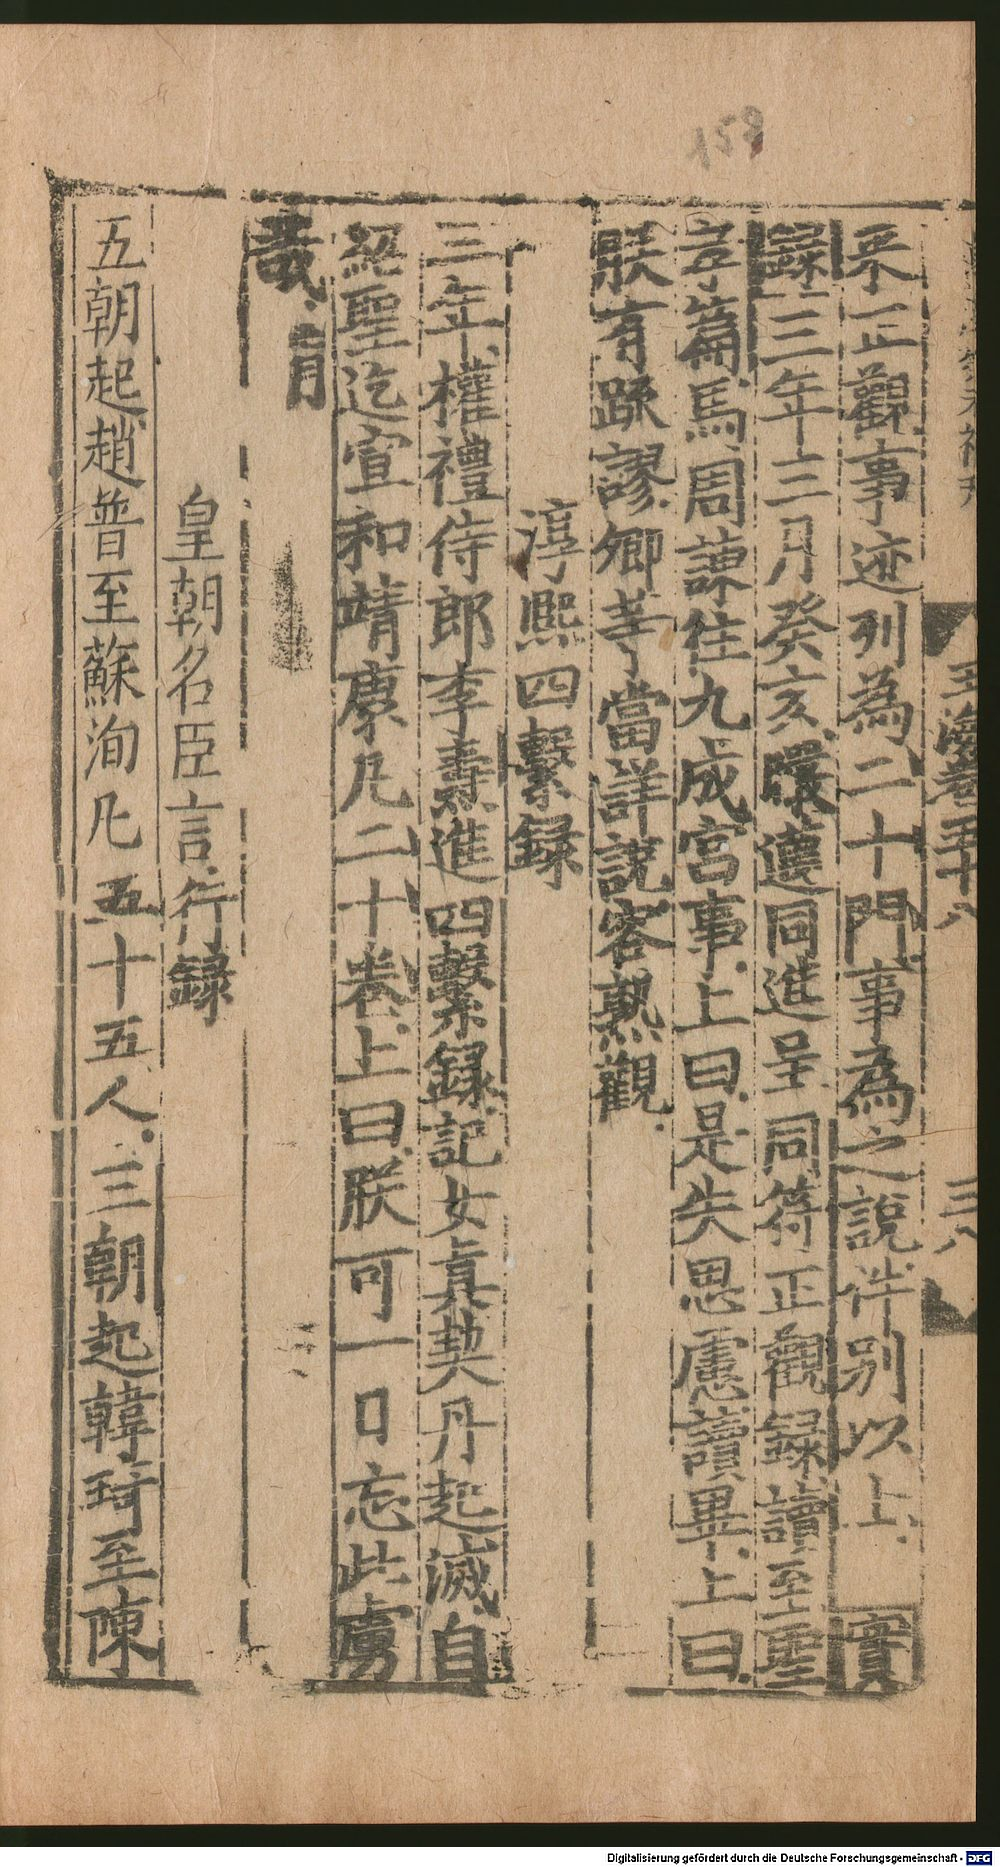 玉海卷五十八
三八
采正觀事迹列為二十門事為之說件別以上實
錄三年三月癸亥曮遵同進呈同符正觀錄讀至聖
孝篇馬周諫往九成宮事上曰是失思慮讀畢上曰
朕有疎謬卿等當詳說容熟觀
淳熙四繫録
三年權禮侍郎李燾進四繫録記女真契丹起滅自
紹聖迄宣和靖康凡二十卷上曰朕可一日忘此虜
哉
皇朝名臣言行録
五朝起趙普至蘇洵凡五十五人三朝起韓琦至陳
Digitalisierung gefördert durch die Deutsche Forschungsgemeinschaft - DFG